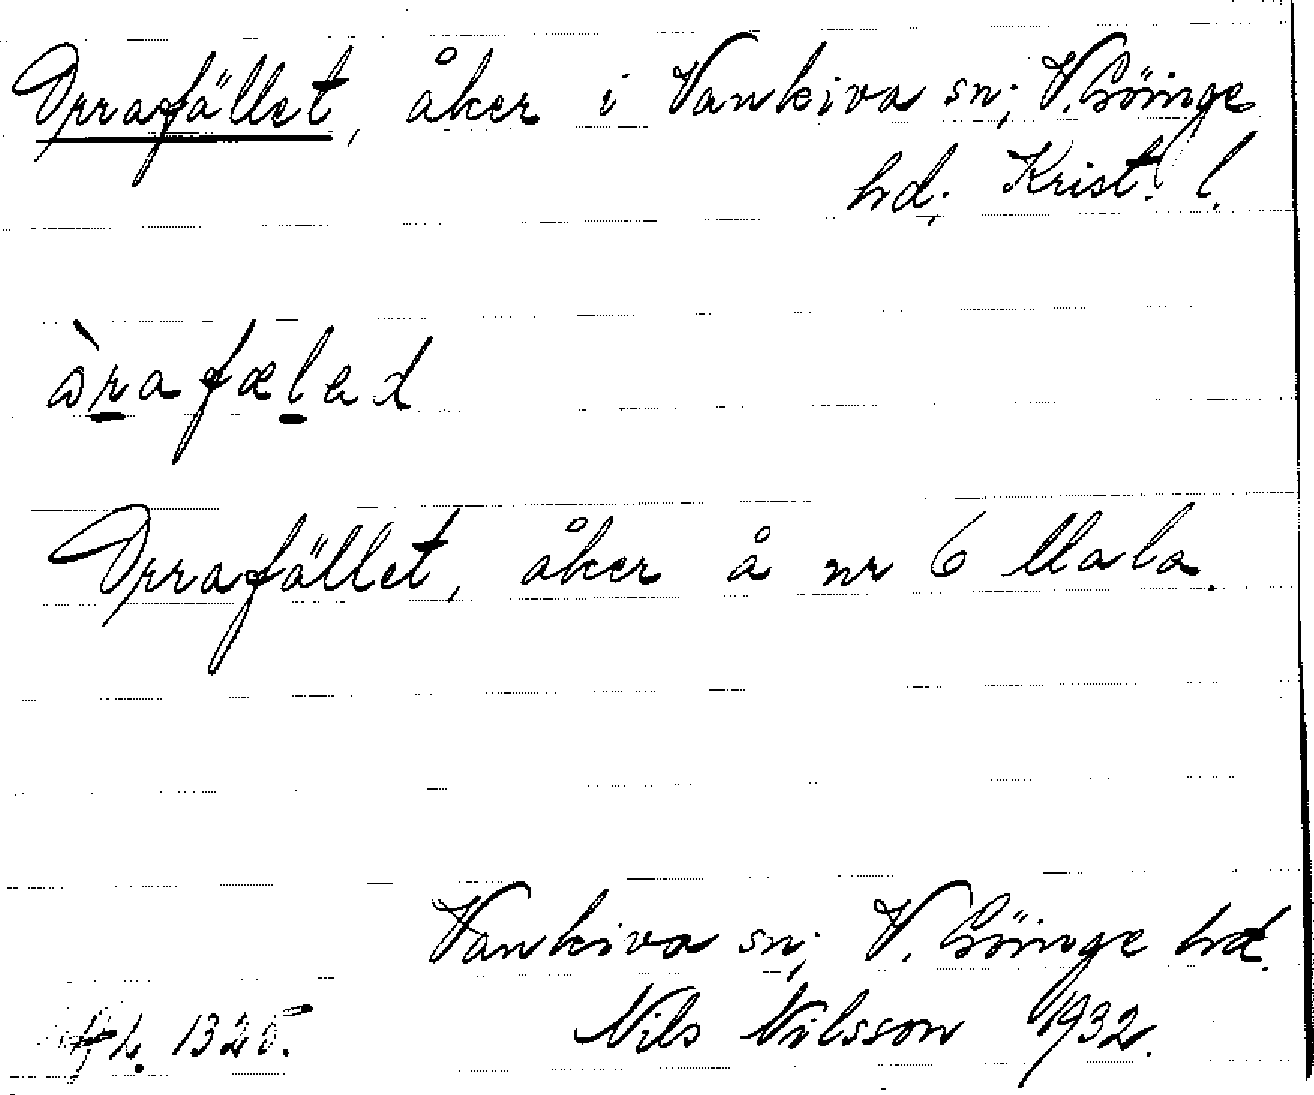 Orrafället, åker i Vankiva sn; V. Göinge
hd; Krist. l.
òrafælad
Orrafället, åker å nr 6 Mala.
Vankiva sn; V. Göinge hd.
1325. Nils Nilsson 1932.